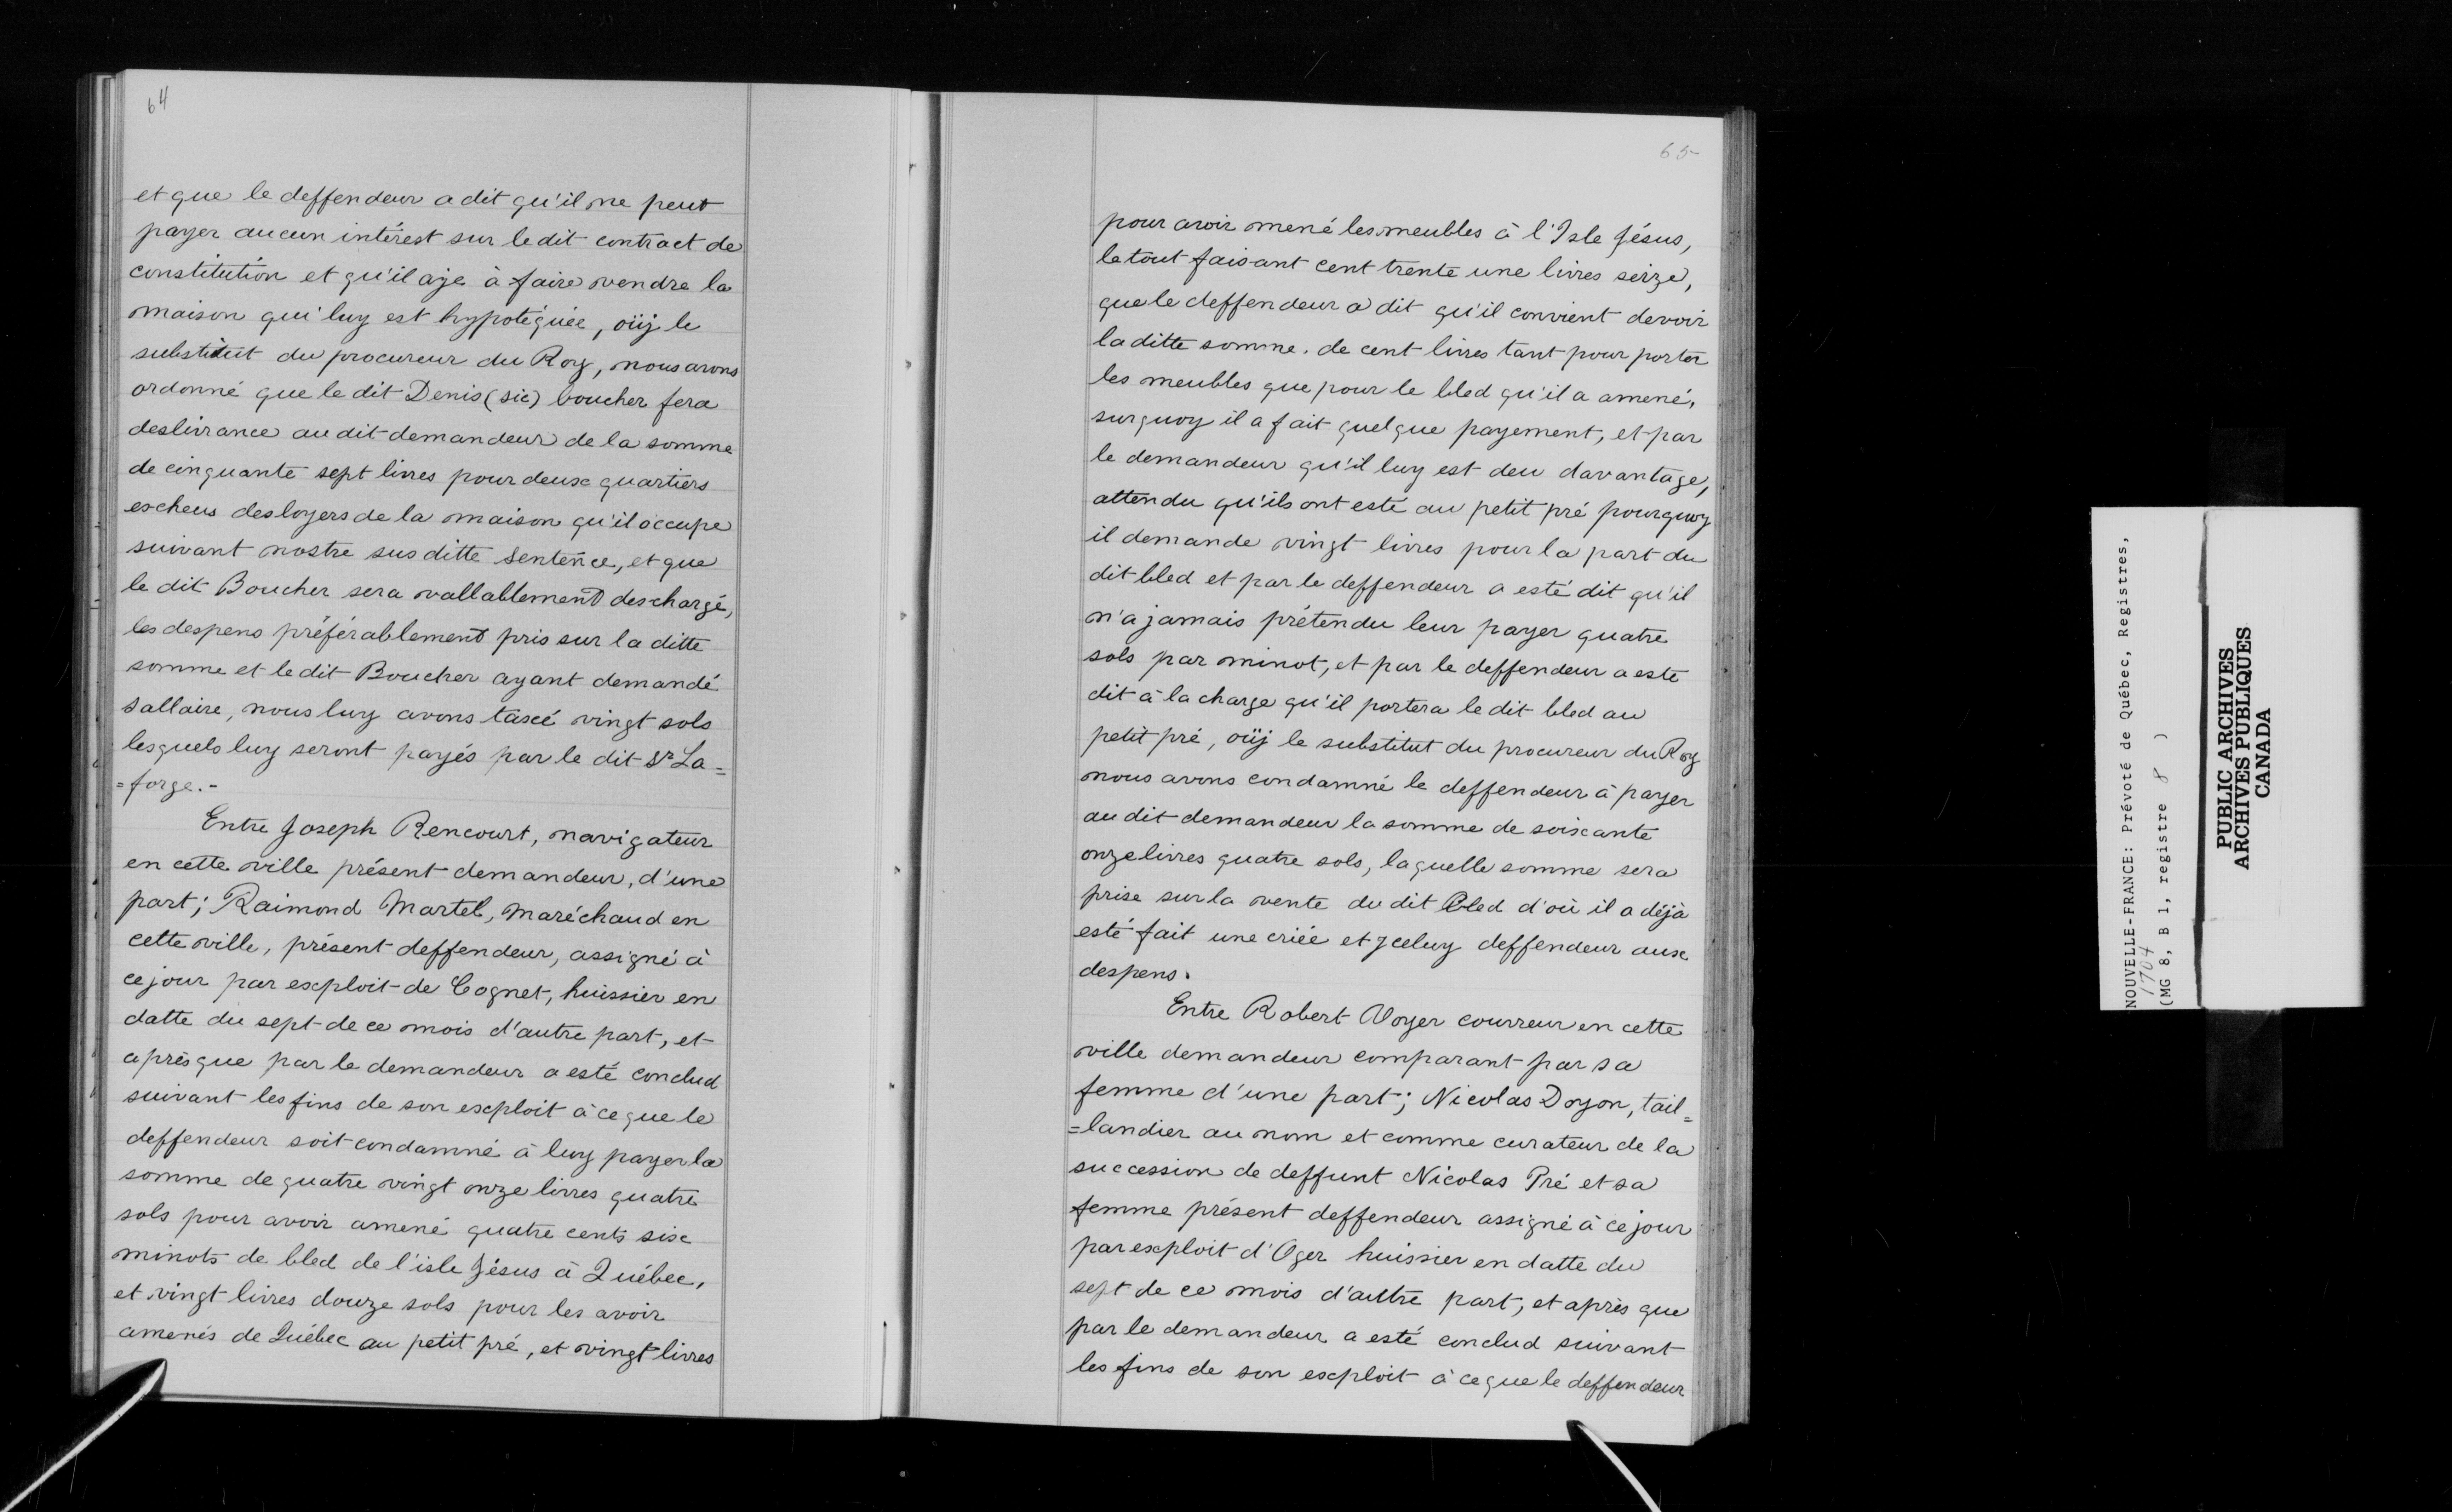 64
et que le deffendeur a dit qu'il ne peut
payer aucun intérest sur le dit contract de
constitution et qu'il aje à faire vendre la
maison qui luy est hypotéquée, oüj le
substitut du procureur du Roy, nous avons
ordonné que le dit Denis (sic) boucher fera
deslivrance au dit demandeur de la somme
de cinquante sept livres pour deux quartiers
escheus des loyers de la maison qu'il occupe
suivant nostre sus ditte sentence, et que
le dit Boucher sera vallablement deschargé,
les despens préférablement pris sur la ditte
somme et le dit Boucher ayant demandé
sallaire, nous luy avons taxé vingt sols
lesquels luy seront payés par le dit Sr La=
=forge.-
Entre Joseph Rencourt, navigateur
en cette ville présent demandeur, d'une
part; Raimond Martel, Maréchaud en
cette ville, présent deffendeur, assigné à
ce jour par exploit de Cognet, huissier en
datte du sept de ce mois d'autre part, et
après que par le demandeur a esté conclud
suivant les fins de son exploit à ce que le
deffendeur soit condamné à luy payer la
somme de quatre vingt onze livres quatre
sols pour avoir amené quatre cents six
minots de bled de l'isle Jésus à Québec,
et vingt livres douze sols pour les avoir
amenés de Québec au petit pré, et vingt livres
65
pour avoir mené les meubles à l'Isle Jésus,
le tout faisant cent trente une livres seize,
que le deffendeur a dit qu'il convient devoir
la ditte somme. de cent livres tant pour porter
les meubles que pour le bled qu'il a amené,
surquoy il a fait quelque payement, et par
le demandeur qu'il luy est deu davantage,
attendu qu'ils ont esté au petit pré pourquoy
il demande vingt livres pour la part du
dit bled et par le deffendeur a esté dit qu'il
n'a jamais prétendu leur payer quatre
sols par minot, et par le deffendeur a este
dit à la charge qu'il portera le dit bled au
petit pré, oüj le substitut du procureur du Roy
nous avons condamné le deffendeur à payer
au dit demandeur la somme de soixante
onze livres quatre sols, laquelle somme sera
prise sur la vente du dit bled d'où il a déjà
esté fait une criée et jceluy deffendeur aux
despens.
Entre Robert Voyer courreur en cette
ville demandeur comparant par sa
femme d'une part; Nicolas Doyon, tail=
=landier au nom et comme curateur de la
succession de deffunt Nicolas Pré et sa
femme présent deffendeur assigné à ce jour
par exploit d'Oger huissier en datte du
sept de ce mois d'autre part, et après que
par le demandeur a esté conclud suivant
les fins de son exploit à ce que le deffendeur
NOUVELLE-FRANCE: Prévoté de Québec, Registres,
1704
(MG 8, B 1, registre 8 )
PUBLIC ARCHIVES
ARCHIVES PUBLIQUES
CANADA